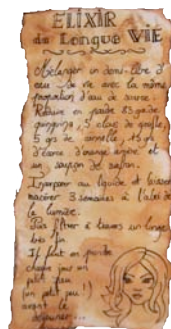 ELIXIR
de Longue VIE
Mélanger un demi-litre d'
eau de vie avec la même
proportion d'eau de source.
Réduire en poudre 85 g de
gingembre, 5 clous de girofle,
5 grs de cannelle, 15 grs
d'écorce d'orange amère et
un soupçon de safran.
Incorporer au liquide et laisser
macérer 3 semaines à l'abri de
la lumière.
Puis filtrer à travers un linge
très fin
Il faut en prendre
chaque jour un
petit peu
(un petit peu !)
avant le
déjeuner...